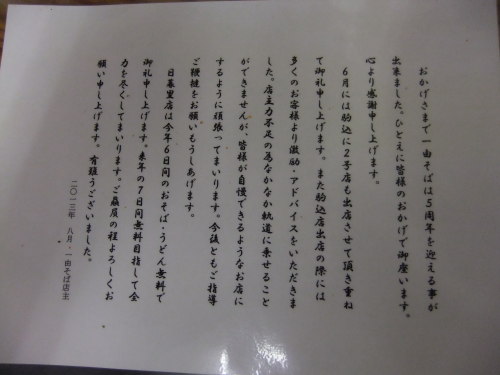 おかげさまで一由そばは5周年を迎える事が
出来ました。ひとえに皆様のおかげで御座います。
心より感謝申し上げます。
6月には駒込に2号店も出店させて頂き重ね
て御礼申し上げます。また駒込店出店の際には
多くのお客様より激励・アドバイスをいただきま
した。店主力不足の為なかなか軌道に乗せること
ができませんが、皆様が自慢できるようなお店に
するように頑張ってまいります。今後ともご指導
ご鞭撻をお願いもうしあげます。
日暮里店は今年6日間のおそば・うどん無料で
御礼申し上げます。来年の7日間無料目指して全
力を尽くしてまいります。ご贔屓の程よろしくお
願い申し上げます。有難うございました。
二〇一三年 八月 一由そば店主